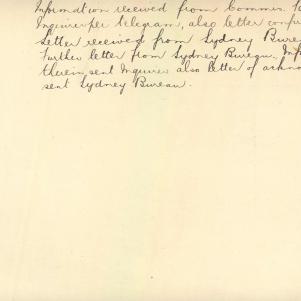 Information received from Commer. 
Inquirer per telegram, also letter
Letter received from Sydney
Further letter from Sydney Bureau.
therein sent Inquirer also letter of
sent Sydney Bureau.